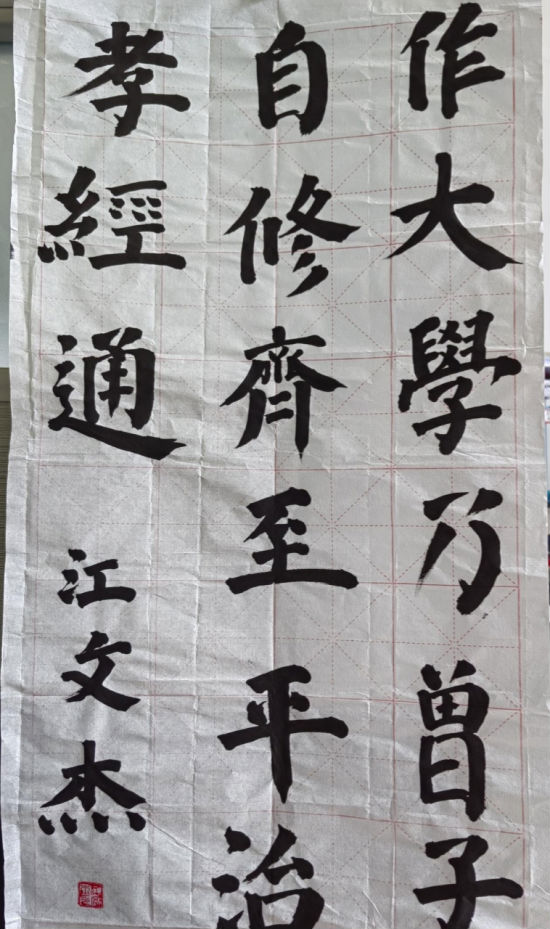 作大學乃曾子
自修齊至平治
孝經通
江文杰